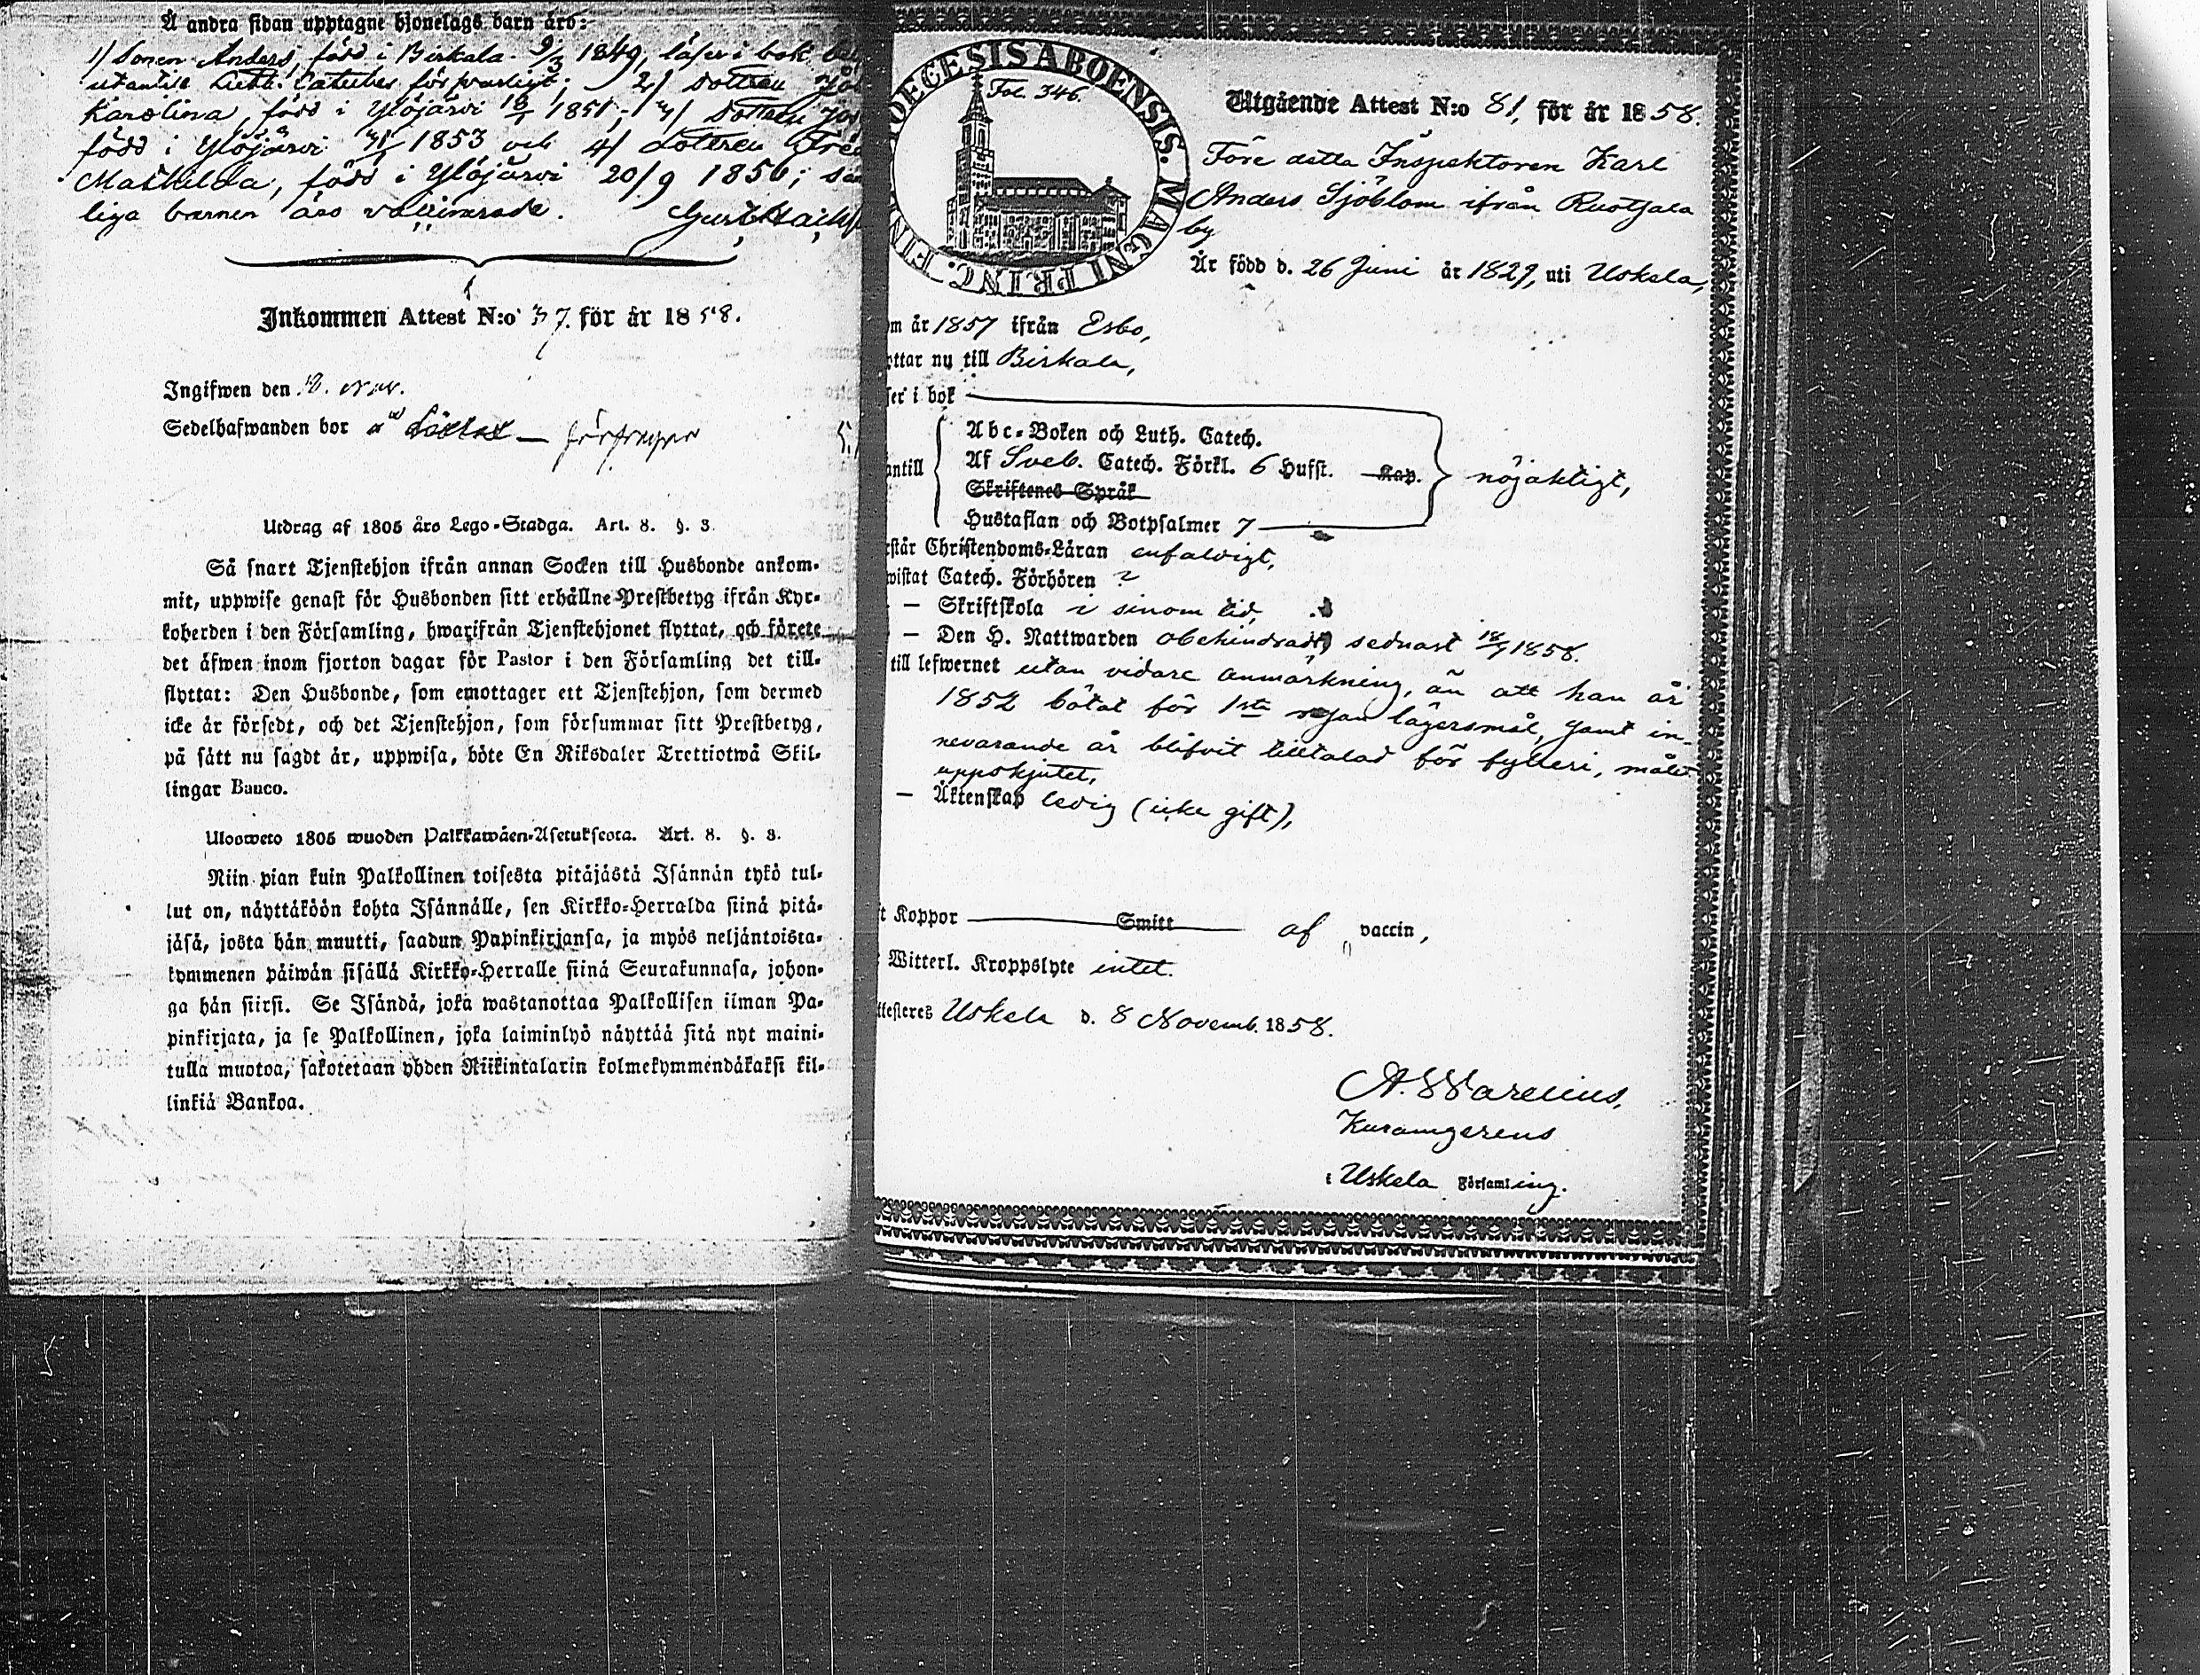 Å andra sidan upptagne hjonelags barn äro:
1/ Sonen Anders, född i Birkala 9/3 1849, läser i bok
utantill Luth. Cateches försvarligt; 2/ Dottren
Karolina, född i Ylöjärvi 1851; 3/ Dottren
född i Ylöjärvi 1853 och 4/ dottren
Mathilda, född i Ylöjärvi 20/9 1856;
liga barnen äro vaccinerade.
Inkommen Attest N:o 37. för år 1858.
Ingifwen den
Sedelhafwanden bor
Utdrag af 1805 års Lego-Stadga. Art. 8. §. 3.
Så snart Tjenstehjon ifrån annan Socken till Husbonde ankom-
mit, uppwise genast för Husbonden sitt erhållne Prestbetyg ifrån Kyr-
koherden i den Församling, hwarifrån Tjenstehjonet flyttat, och förete
det äfwen inom fjorton dagar för Pastor i den Församling det till-
flyttat: Den Husbonde, som emottager ett Tjenstehjon, som dermed
icke är försedt, och det Tjenstehjon, som försummar sitt Prestbetyg,
på sätt nu sagdt är, uppwisa, böte En Riksdaler Trettiotwå Skil-
lingar Banco.
Ulosweto 1805 wuoden Palkkawäen-Asetuksesta. Art. 8. §. 3.
Niin pian kuin Palkollinen toisesta pitäjästä Isännän tykö tul-
lut on, näyttäköön kohta Isännälle, sen Kirkko-Herralda siinä pitä-
jäsä, josta hän muutti, saadun Papinkirjansa, ja myös neljäntoista-
kymmenen päiwän sisällä Kirkko-Herralle siinä Seurakunnasa, johon-
ga hän siirsi. Se Isändä, joka wastanottaa Palkollisen ilman Pa-
pinkirjata, ja se Palkollinen, joka laiminlyö näyttää sitä nyt maini-
tulla muotoa, sakotetaan yhden Riikintalarin kolmekymmendäkaksi kil-
linkiä Bankoa.
DIOECESIS ABOENSIS. MAGNI PRINC. FIN
Fol. 346.
Utgående Attest N:o 81, för år 1858.
Före detta Inspektoren Karl
Anders Sjöblom ifrån Ruotsala
by
Är född d. 26 Juni år 1829, uti Uskela,
om år 1857 ifrån Esbo,
yttar nu till Birkala,
ser i bok
antill
Abc-Boken och Luth. Catech.
Af Sveb. Catech. Förkl. 6 Hufst. Kap. nöjaktigt,
Skriftenes Språk
Hustaflan och Botpsalmer 7
rstår Christendoms-Läran enfaldigt,
wistat Catech. Förhören ?
— Skriftskola i sinom tid,
— Den H. Nattwarden obehindrad, sednast 18/7 1858.
till lefwernet utan vidare anmärkning, än att han år
1852 bötat för 1sta resan lägersmål, samt in-
nevarande år blifvit tilltalad för fylleri, målet
uppskjutet,
— Äktenskap ledig (icke gift),
t Koppor Smitt af vaccin,
Witterl. Kroppslyte intet.
ttesteres Uskela d. 8 Novemb. 1858.
A. Warelius,
i Uskela Församling.